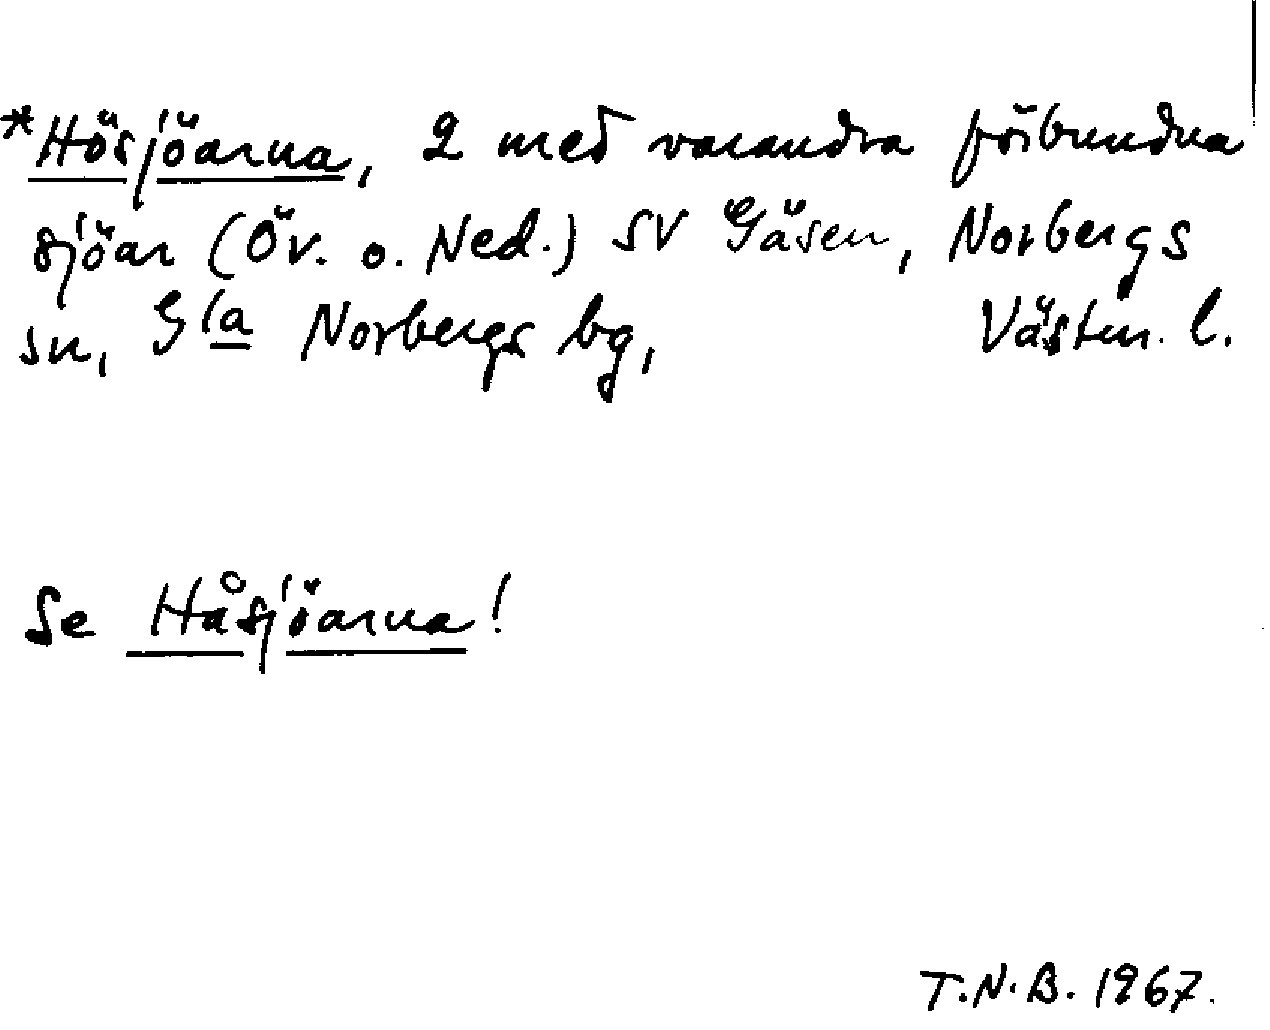 *Hösjöarna, 2 med varandra förbundna
sjöar (Öv. o. Ned.) SV Gäsen, Norbergs
sn, Gla Norbergs bg, Västm. l.
Se Håsjöarna!
T.N.B. 1967.